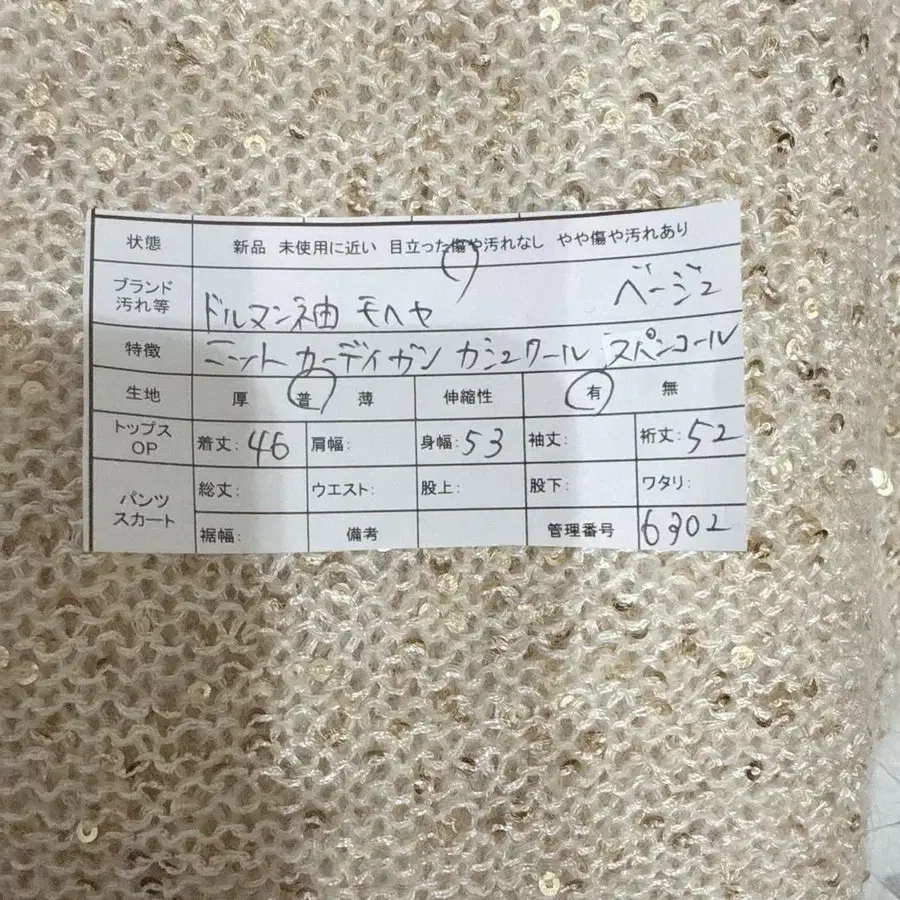 状態 新品 未使用に近い 目立った傷や汚れなし やや傷や汚れあり
ブランド 汚れ等 ドルマン袖 モヘヤ ベージュ
特徴 ニット カーディガン カシュクール スパンコール
生地 厚 普 薄 伸縮性 有 無
トップス OP 着丈: 46 肩幅: 身幅: 53 袖丈: 裄丈: 52
パンツ スカート 総丈: ウエスト: 股上: 股下: ワタリ:
裾幅: 備考 管理番号 6302